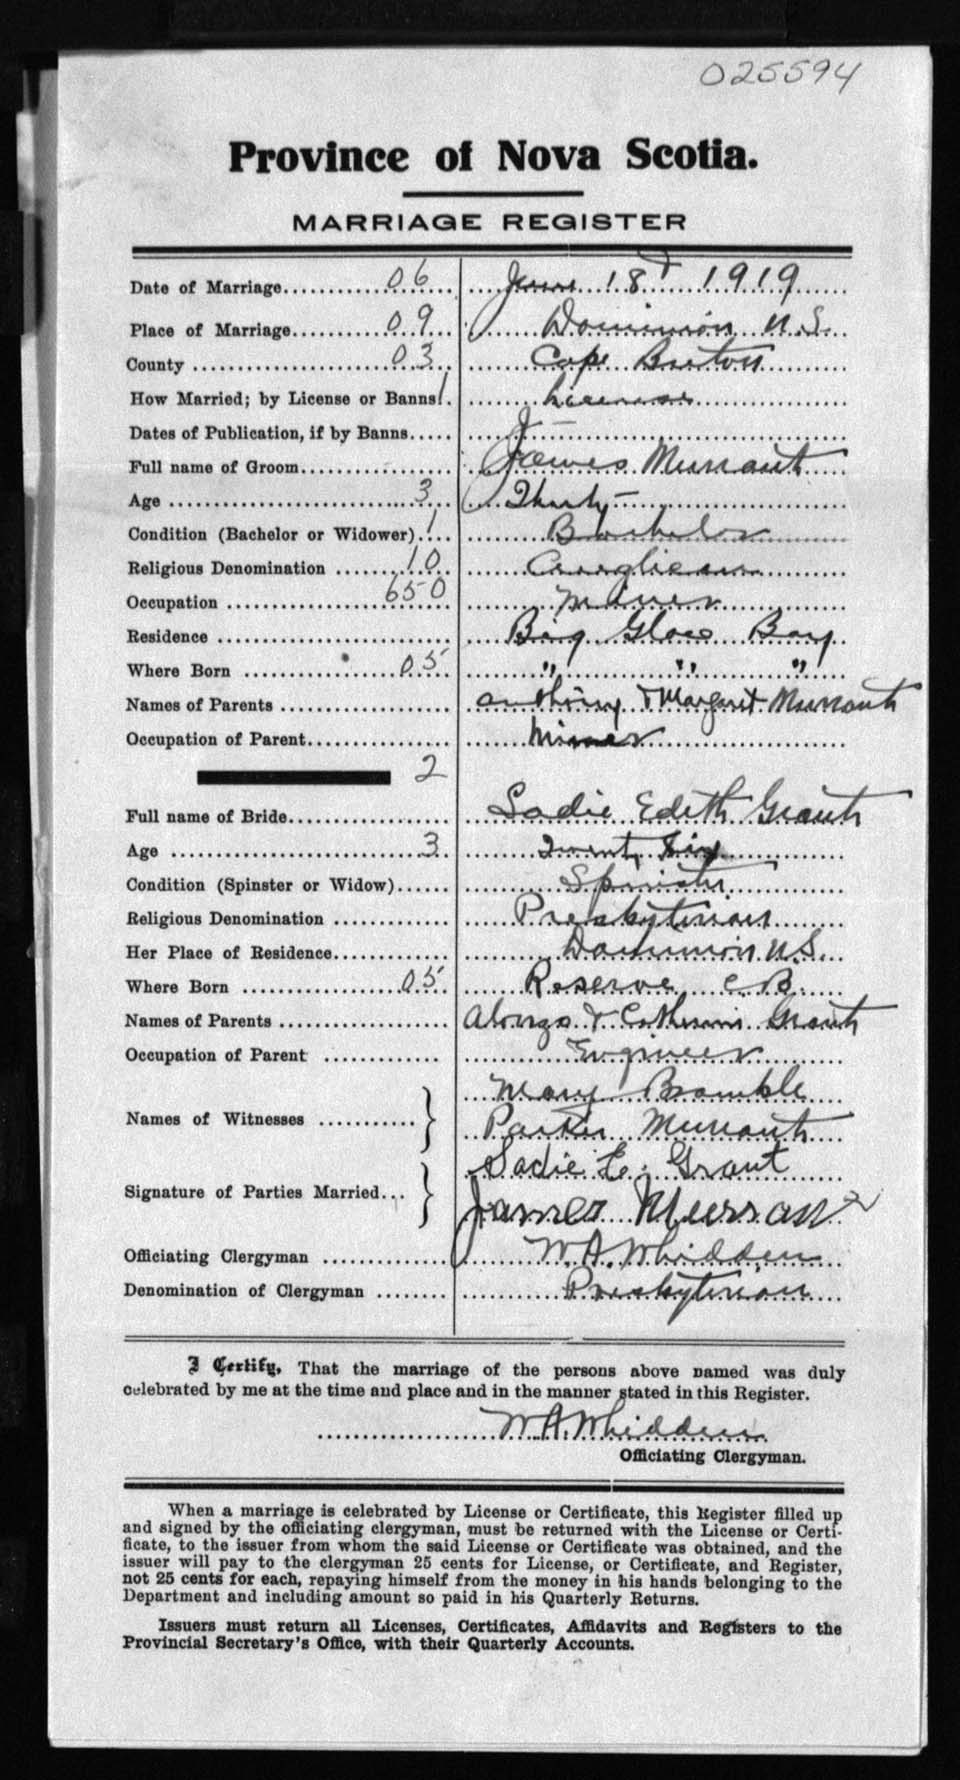 025594
Province of Nova Scotia.
MARRIAGE REGISTER
Date of Marriage 06 June 18th 1919
Place of Marriage 09 Dominion N.S.
County 03 Cape Breton
How Married; by License or Banns 1 License
Dates of Publication, if by Banns —
Full name of Groom James Murrant
Age 3 Thirty –
Condition (Bachelor or Widower) 1 Bachelor
Religious Denomination 10 Anglican
Occupation 650 Miner
Residence Big Glace Bay
Where Born 05 " " "
Names of Parents Anthony & Margaret Murrant
Occupation of Parent Miner
2
Full name of Bride Sadie Edith Grant
Age 3 Twenty Six
Condition (Spinster or Widow) Spinster
Religious Denomination Presbyterian
Her Place of Residence Dominion N.S.
Where Born 05 Reserve C.B.
Names of Parents Alonzo & Catherine Grant
Occupation of Parent Engineer
Names of Witnesses Mary Bramble
Parker Murrant
Signature of Parties Married Sadie E. Grant
James Murrant
Officiating Clergyman W.A. Whidden
Denomination of Clergyman Presbyterian
I Certify, That the marriage of the persons above named was duly
celebrated by me at the time and place and in the manner stated in this Register.
W.A. Whidden
Officiating Clergyman.
When a marriage is celebrated by License or Certificate, this Register filled up
and signed by the officiating clergyman, must be returned with the License or Certi-
ficate, to the issuer from whom the said License or Certificate was obtained, and the
issuer will pay to the clergyman 25 cents for License, or Certificate, and Register,
not 25 cents for each, repaying himself from the money in his hands belonging to the
Department and including amount so paid in his Quarterly Returns.
Issuers must return all Licenses, Certificates, Affidavits and Registers to the
Provincial Secretary's Office, with their Quarterly Accounts.